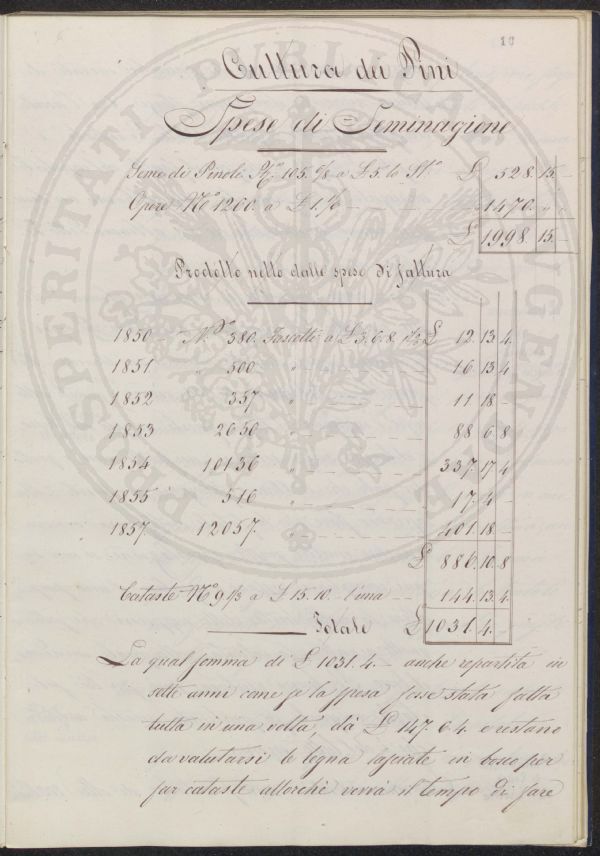 10
Cultura dei Pini
Spese di Seminagione
Seme di Pinoli St.ª 105. 6/8 a £ 5 lo St.º £ 528. 15. –
Opere N.º 1260. a £ 1. 1470. " "
£ 1998. 15. –
Prodotto netto dalle spese di fattura
1850 – N.º 380. Fascetti a £ 3. 6. 8. £ 12. 13. 4.
1851 " 500 " 16. 13. 4
1852 357 " 11. 18 –
1853 2650 " 88. 6. 8
1854 10136 " 337. 17. 4
1855 516 " 17. 4 –
1857. 12057. " 401. 18. –
£ 886. 10. 8
Cataste N.º 9 1/3 a £ 15. 10. – l'una – 144. 13. 4.
Totale £ 1031. 4. –
La qual somma di £ 1031. 4. – anche repartita in
sette anni come se la spesa fosse stata fatta
tutta in una volta, dà £ 147. 6. 4. e restano
da valutarsi le legna lasciate in bosco per
far cataste allorchè verrà il tempo di fare
PROSPERITATI PUBLICAE AUGENDAE